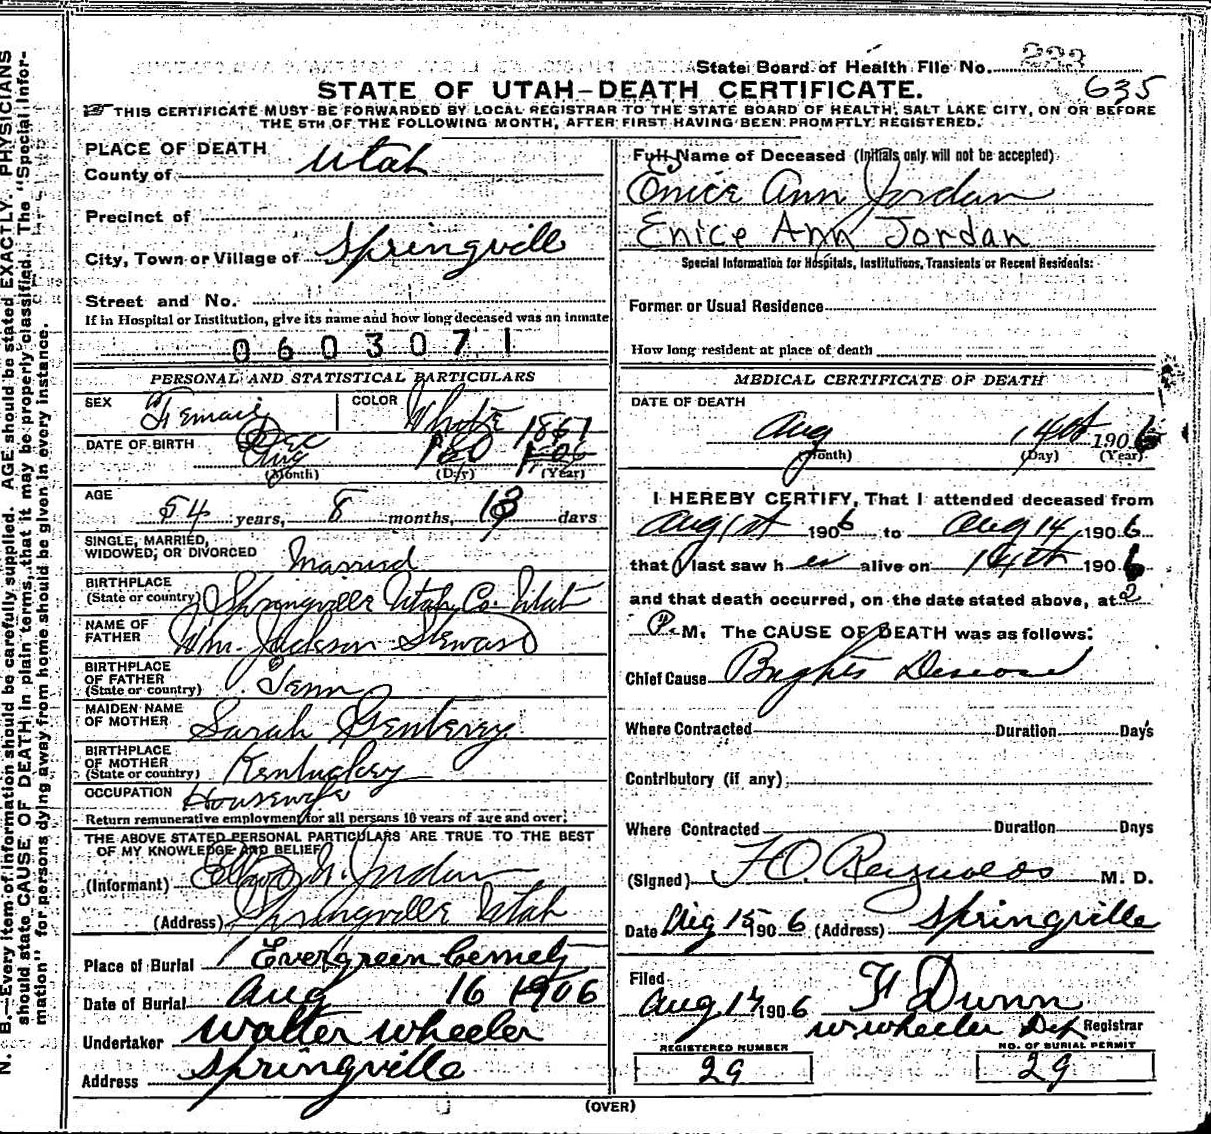 State Board of Health File No. 233
635
STATE OF UTAH–DEATH CERTIFICATE.
THIS CERTIFICATE MUST BE FORWARDED BY LOCAL REGISTRAR TO THE STATE BOARD OF HEALTH, SALT LAKE CITY, ON OR BEFORE
THE 5TH OF THE FOLLOWING MONTH, AFTER FIRST HAVING BEEN PROMPTLY REGISTERED.
PLACE OF DEATH
County of Utah
Precinct of
City, Town or Village of Springvill
Street and No.
If in Hospital or Institution, give its name and how long deceased was an inmate
0603071
Full Name of Deceased (Initials only will not be accepted)
Enice Ann Jordan
Enice Ann Jordan
Special Information for Hospitals, Institutions, Transients or Recent Residents:
Former or Usual Residence
How long resident at place of death
PERSONAL AND STATISTICAL PARTICULARS
SEX Female
COLOR White
DATE OF BIRTH Dec
(Month) (Day) (Year)
AGE 54 years, 8 months, 13 days
SINGLE, MARRIED,
WIDOWED, OR DIVORCED Married
BIRTHPLACE
(State or country) Springville Utah Co. Utah
NAME OF
FATHER Wm. Jackson Steward
BIRTHPLACE
OF FATHER
(State or country) Tenn
MAIDEN NAME
OF MOTHER Sarah
BIRTHPLACE
OF MOTHER
(State or country) Kentuckey
OCCUPATION Housewife
Return remunerative employment for all persons 10 years of age and over.
THE ABOVE STATED PERSONAL PARTICULARS ARE TRUE TO THE BEST
OF MY KNOWLEDGE AND BELIEF
(Informant) Jordan
(Address) Springville Utah
Place of Burial Evergreen Cemety
Date of Burial Aug 16 1906
Undertaker Walter Wheeler
Address Springville
MEDICAL CERTIFICATE OF DEATH
DATE OF DEATH
Aug 14th 1906
(Month) (Day) (Year)
I HEREBY CERTIFY, That I attended deceased from
Aug 1st 1906 to Aug 14 1906
that I last saw h er alive on 14th 1906
and that death occurred, on the date stated above, at 2
P. M. The CAUSE OF DEATH was as follows:
Chief Cause Brights Disease
Where Contracted Duration Days
Contributory (if any)
Where Contracted Duration Days
(Signed) F O Reynolds M. D.
Date Aug 15 1906 (Address) Springville
Filed
Aug 17 1906 F Dunn
W. Wheeler Dep Registrar
REGISTERED NUMBER
29
NO. OF BURIAL PERMIT
29
(OVER)
N. B.—Every item of information should be carefully supplied. AGE should be stated EXACTLY. PHYSICIANS
should state CAUSE OF DEATH in plain terms, that it may be properly classified. The "Special Infor-
mation" for persons dying away from home should be given in every instance.